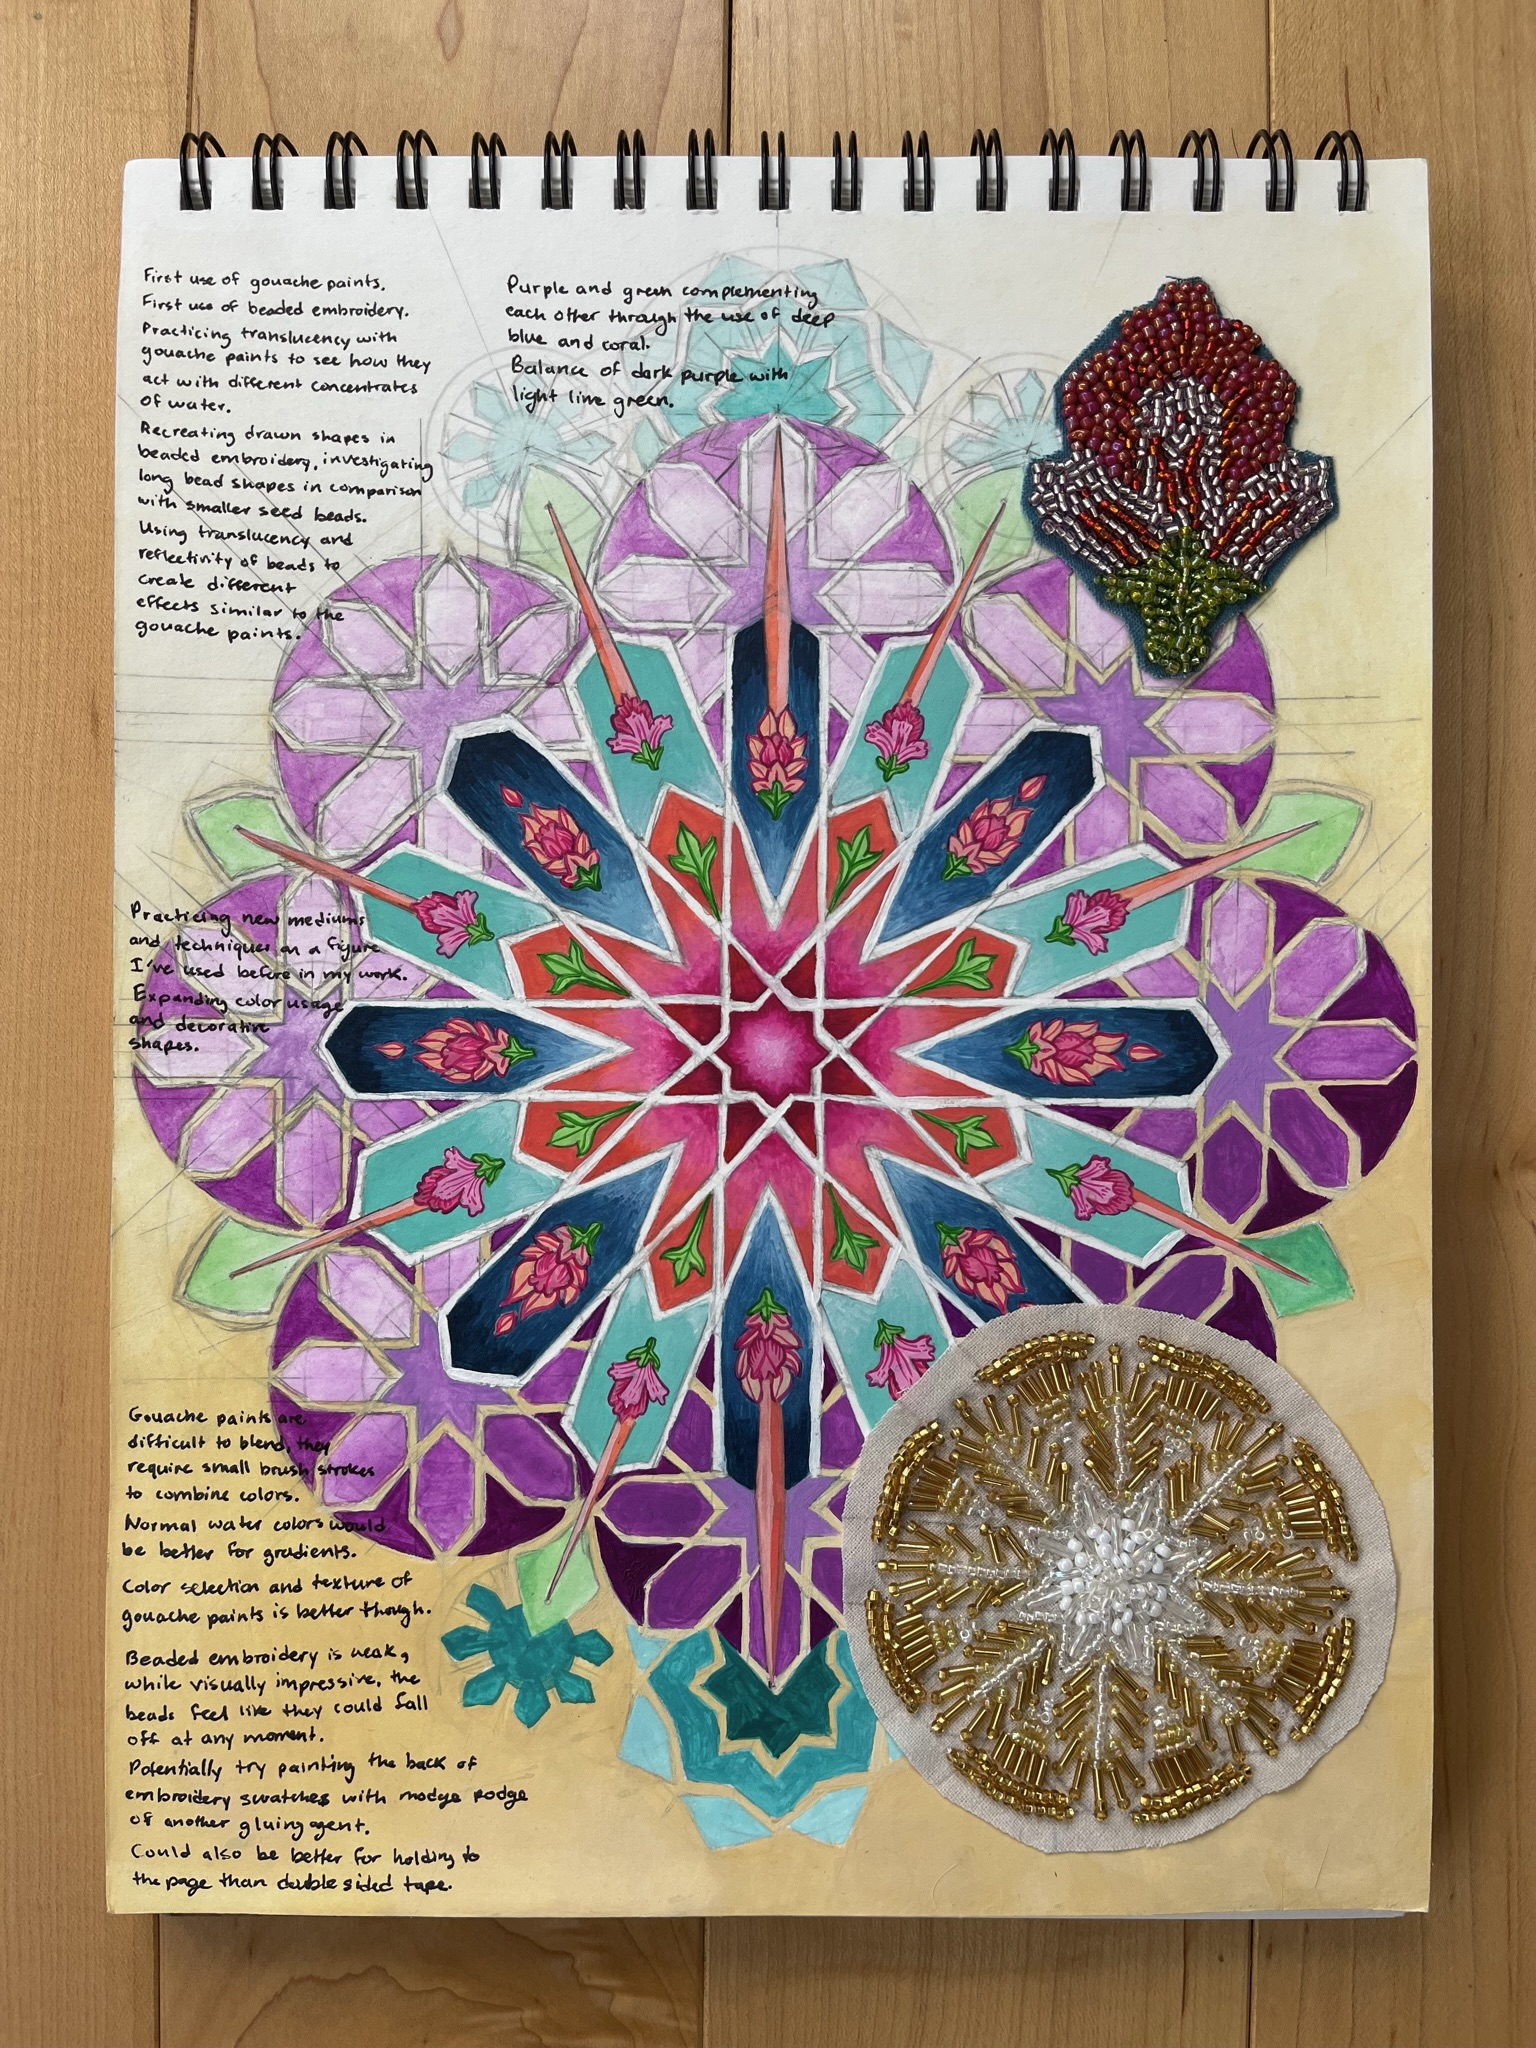 First use of gouache paints.
First use of beaded embroidery.
Practicing translucency with
gouache paints to see how they
act with different concentrates
of water.
Recreating drawn shapes in
beaded embroidery, investigating
long bead shapes in comparison
with smaller seed beads.
Using translucency and
reflectivity of beads to
create different
effects similar to the
gouache paints.
Purple and green complementing
each other through the use of deep
blue and coral.
Balance of dark purple with
light lime green.
Practicing new mediums
and techniques on a figure
I've used before in my work.
Expanding color usage
and decorative
shapes.
Gouache paints are
difficult to blend, they
require small brush strokes
to combine colors.
Normal water colors would
be better for gradients.
Color selection and texture of
gouache paints is better though.
Beaded embroidery is weak,
while visually impressive, the
beads feel like they could fall
off at any moment.
Potentially try painting the back of
embroidery swatches with modge podge
of another gluing agent.
Could also be better for holding to
the page than double sided tape.